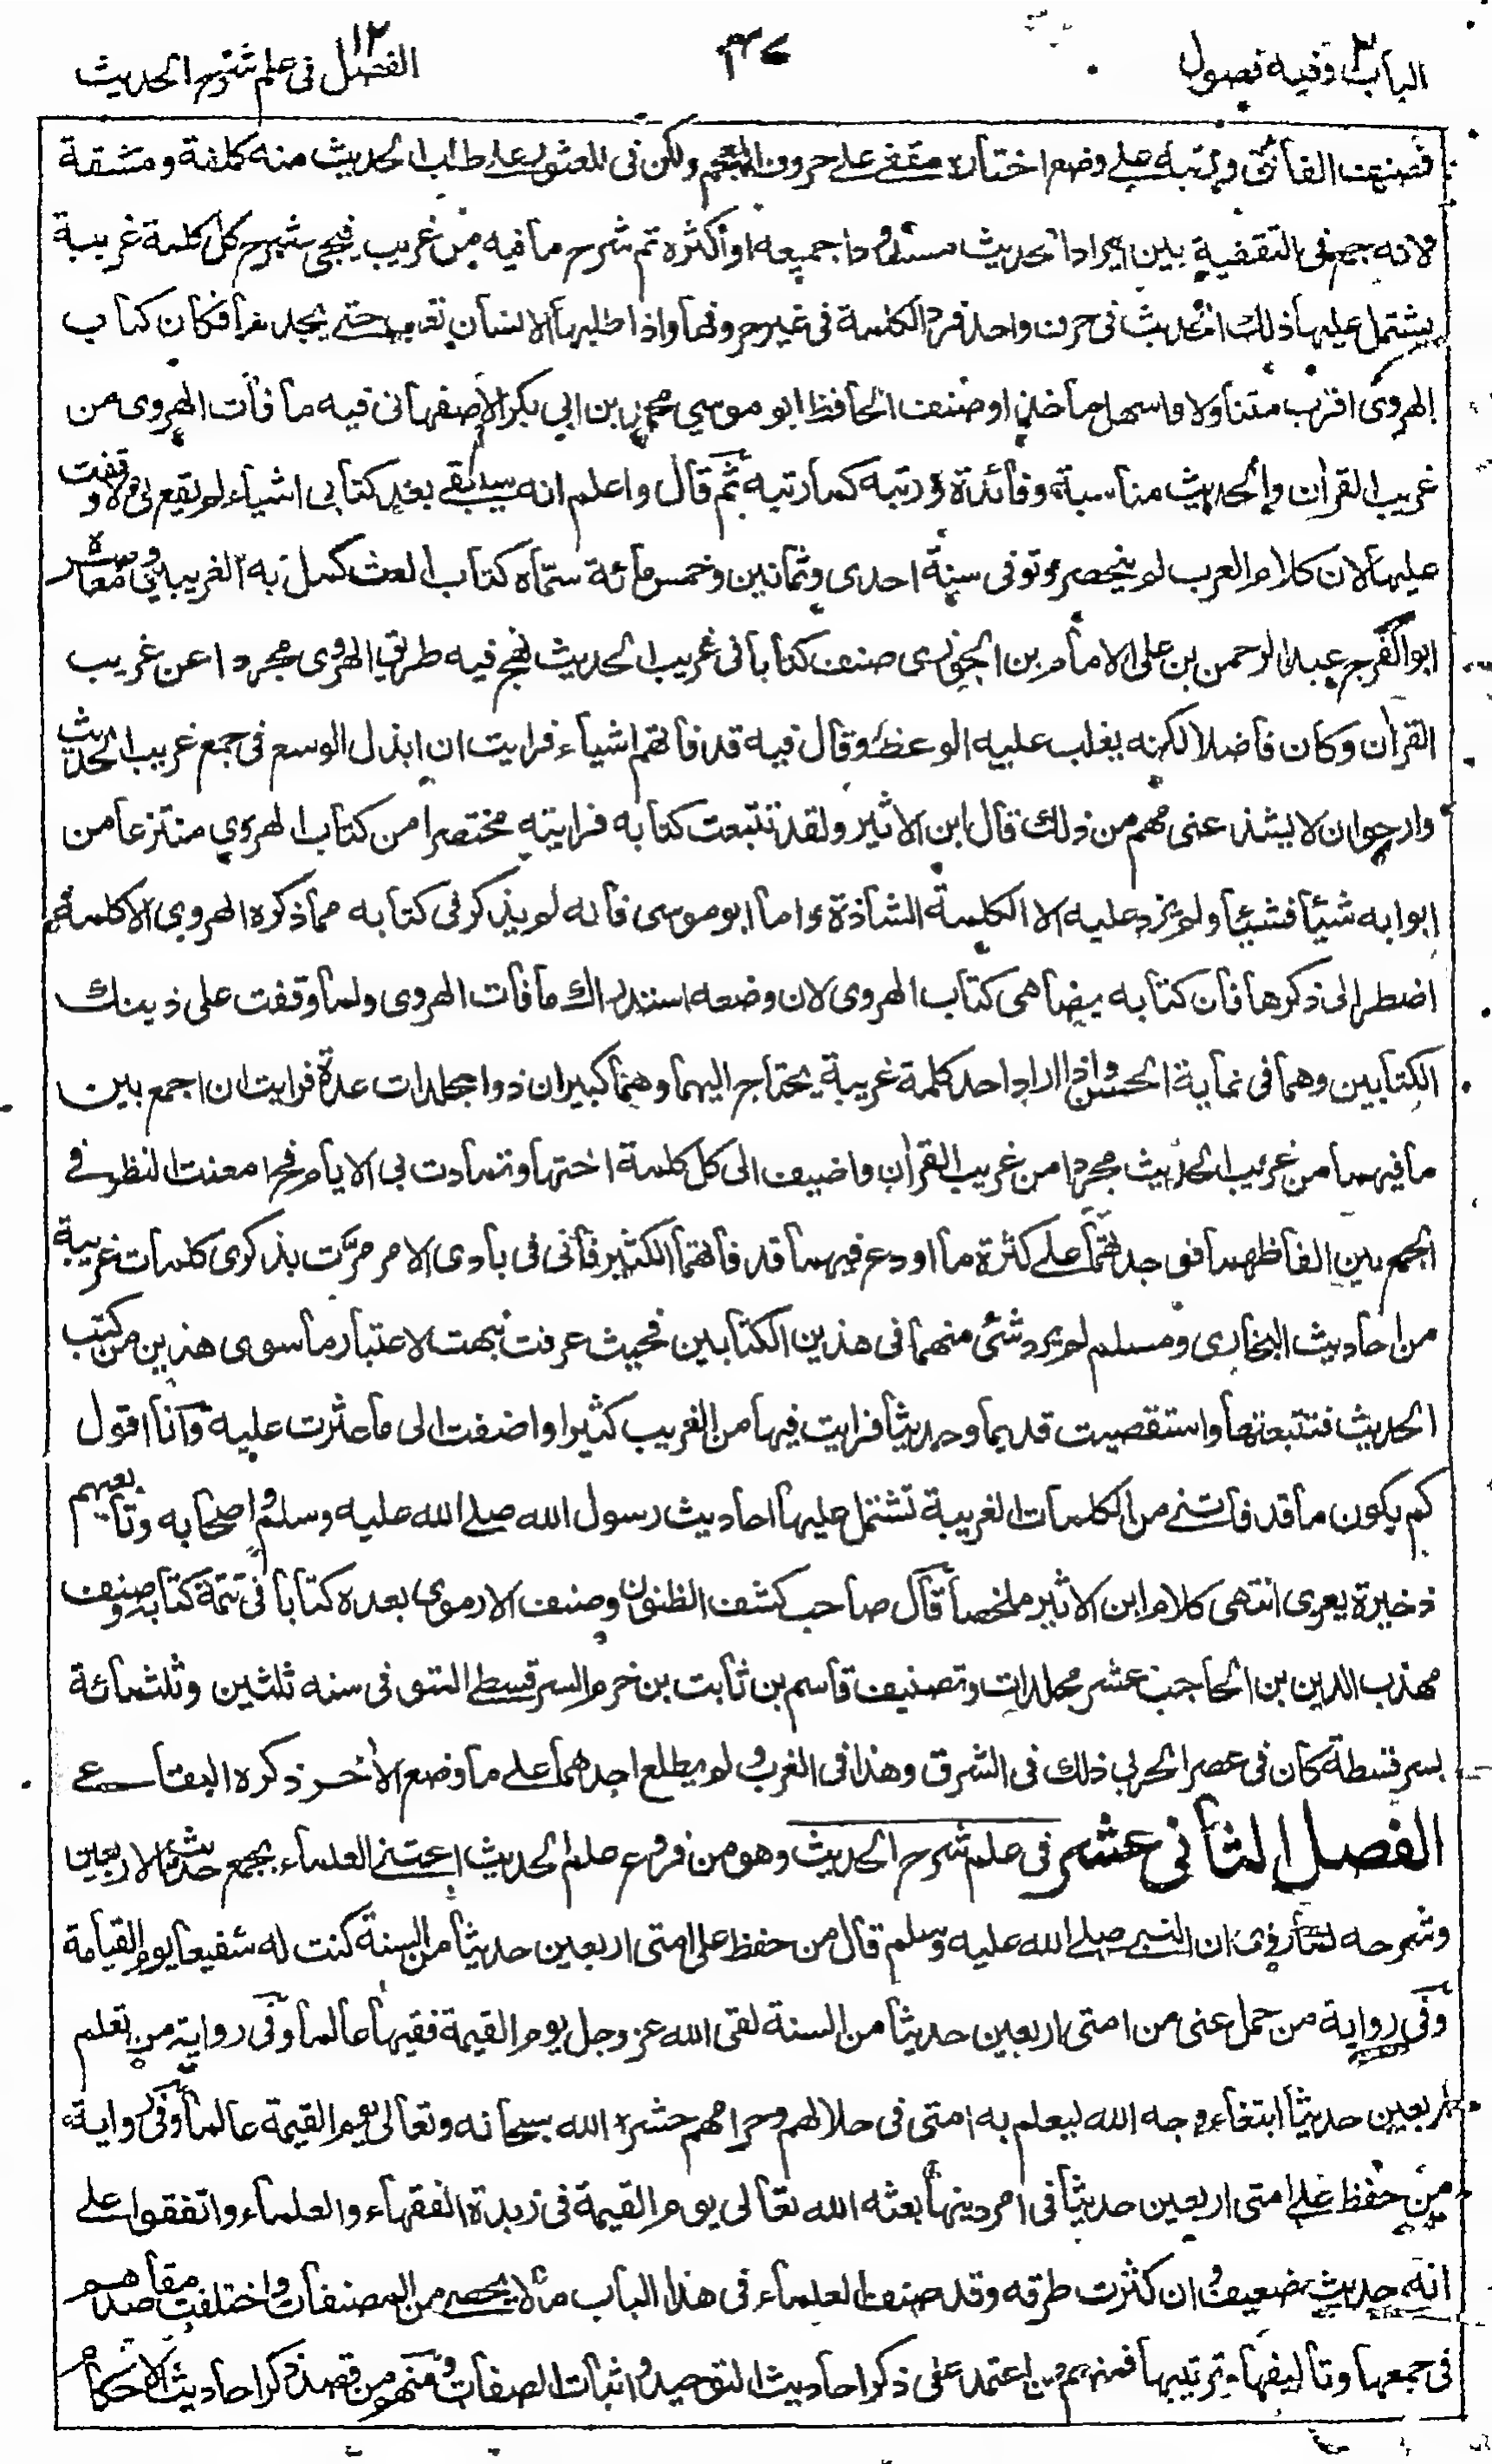 الباب ٢ وفيه فصول
٤٧
الفصل ١٢ فى علم شرح الحديث
فصنف الفائق ورتبه على وضع اختاره مقفى على حروف المعجم ولكن فى العثور على طلب الحديث منه كلفة ومشقة
لانه جمع فى التقفية بين ايراد الحديث مسرودا جميعه او اكثره ثم شرح ما فيه من غريب فيجى شرح كل كلمة غريبة
يشتمل عليها ذلك الحديث فى حرف واحد فترد الكلمة فى غير حروفها واذا طلبها الانسان تعب حتى يجدها فكان كتاب
الهروى اقرب متناولا واسهل ماخذا وصنف الحافظ ابو موسى محمد بن ابى بكر الاصفهانى فيه ما فات الهروى من
غريب القرآن والحديث مناسبة وفائدة ورتبه كما رتبه ثم قال واعلم انه سيبقى بعد كتابى اشياء لم يقع لى ولا وقفت
عليها لان كلام العرب لا ينحصر وتوفى سنة احدى وثمانين وخمس مائة سماه كتاب المغيث كمل به الغريبين ومعاصره
ابو الفرج عبد الرحمن بن على الامام بن الجوزى صنف كتابا فى غريب الحديث نهج فيه طريق الهروى مجردا عن غريب
القرآن وكان فاضلا لكنه يغلب عليه الوعظ وقال فيه قد فاتهم اشياء فرايت ان ابذل الوسع فى جمع غريب الحديث
وارجو ان لا يشذ عنى مهم من ذلك قال ابن الاثير ولقد تتبعت كتابه فرايته مختصرا من كتاب الهروى منتزعا من
ابوابه شيئا فشيئا ولم يزد عليه الا الكلمة الشاذة واما ابو موسى فانه لم يذكر فى كتابه مما ذكره الهروى الا كلمة
اضطر الى ذكرها فان كتابه يضاهى كتاب الهروى لان وضعه استدراك ما فات الهروى ولما وقفت على ذينك
الكتابين وهما فى غاية الحسن واذا اراد احد كلمة غريبة يحتاج اليهما وهما كبيران ذوا مجلدات عدة فرايت ان اجمع بين
ما فيهما من غريب الحديث مجردا من غريب القرآن واضيف الى كل كلمة اختها وتمادت بى الايام فحين امعنت النظر فى
الجمع بين الفاظهما فوجدتهما على كثرة ما اودع فيهما قد فاتهما الكثير فانى فى بادى الامر مرت بذكرى كلمات غريبة
من احاديث البخارى ومسلم لم يرد شئ منهما فى هذين الكتابين فحيث عرفت نبهت لاعتبار ما سوى هذين من كتب
الحديث فتتبعتها واستقصيت قديما وحديثا فرايت فيها من الغريب كثيرا واضفت الى ما عثرت عليه وانا اقول
كم يكون ما قد فاتنى من الكلمات الغريبة تشتمل عليها احاديث رسول الله صلى الله عليه وسلم واصحابه وتابعيهم
ذخيرة لغيرى انتهى كلام ابن الاثير ملخصا قال صاحب كشف الظنون وصنف الارموى بعده كتابا فى تتمة كتابه وصنف
مهذب الدين بن الحاجب عشر مجلدات وتصنيف قاسم بن ثابت بن حزم السرقسطى المتوفى سنه ثلثين وثلثمائة
بسرقسطة كان فى عصر الحربى ذلك فى الشرق وهذا فى الغرب ولم يطلع احدهما على ما وضع الآخر ذكره البقاعى
الفصل الثانى عشر فى علم شرح الحديث وهو من فروع علم الحديث اعتنى العلماء بجمع حديث الاربعين
وشرحه لما روى ان النبى صلى الله عليه وسلم قال من حفظ على امتى اربعين حديثا من السنة كنت له شفيعا يوم القيامة
وفى رواية من حمل عنى من امتى اربعين حديثا من السنة لقى الله عز وجل يوم القيمة فقيها عالما وفى رواية من تعلم
اربعين حديثا ابتغاء وجه الله ليعلم به امتى فى حلالهم وحرامهم حشره الله سبحانه وتعالى يوم القيمة عالما وفى رواية
من حفظ على امتى اربعين حديثا فى امر دينها بعثه الله تعالى يوم القيمة فى زبدة الفقهاء والعلماء واتفقوا على
انه حديث ضعيف وان كثرت طرقه وقد صنف العلماء فى هذا الباب ما لا يحصى من المصنفات واختلفت مقاصدهم
فى جمعها وتاليفها وترتيبها فمنهم من اعتمد على ذكر احاديث التوحيد واثبات الصفات ومنهم من قصد ذكر احاديث الاحكام